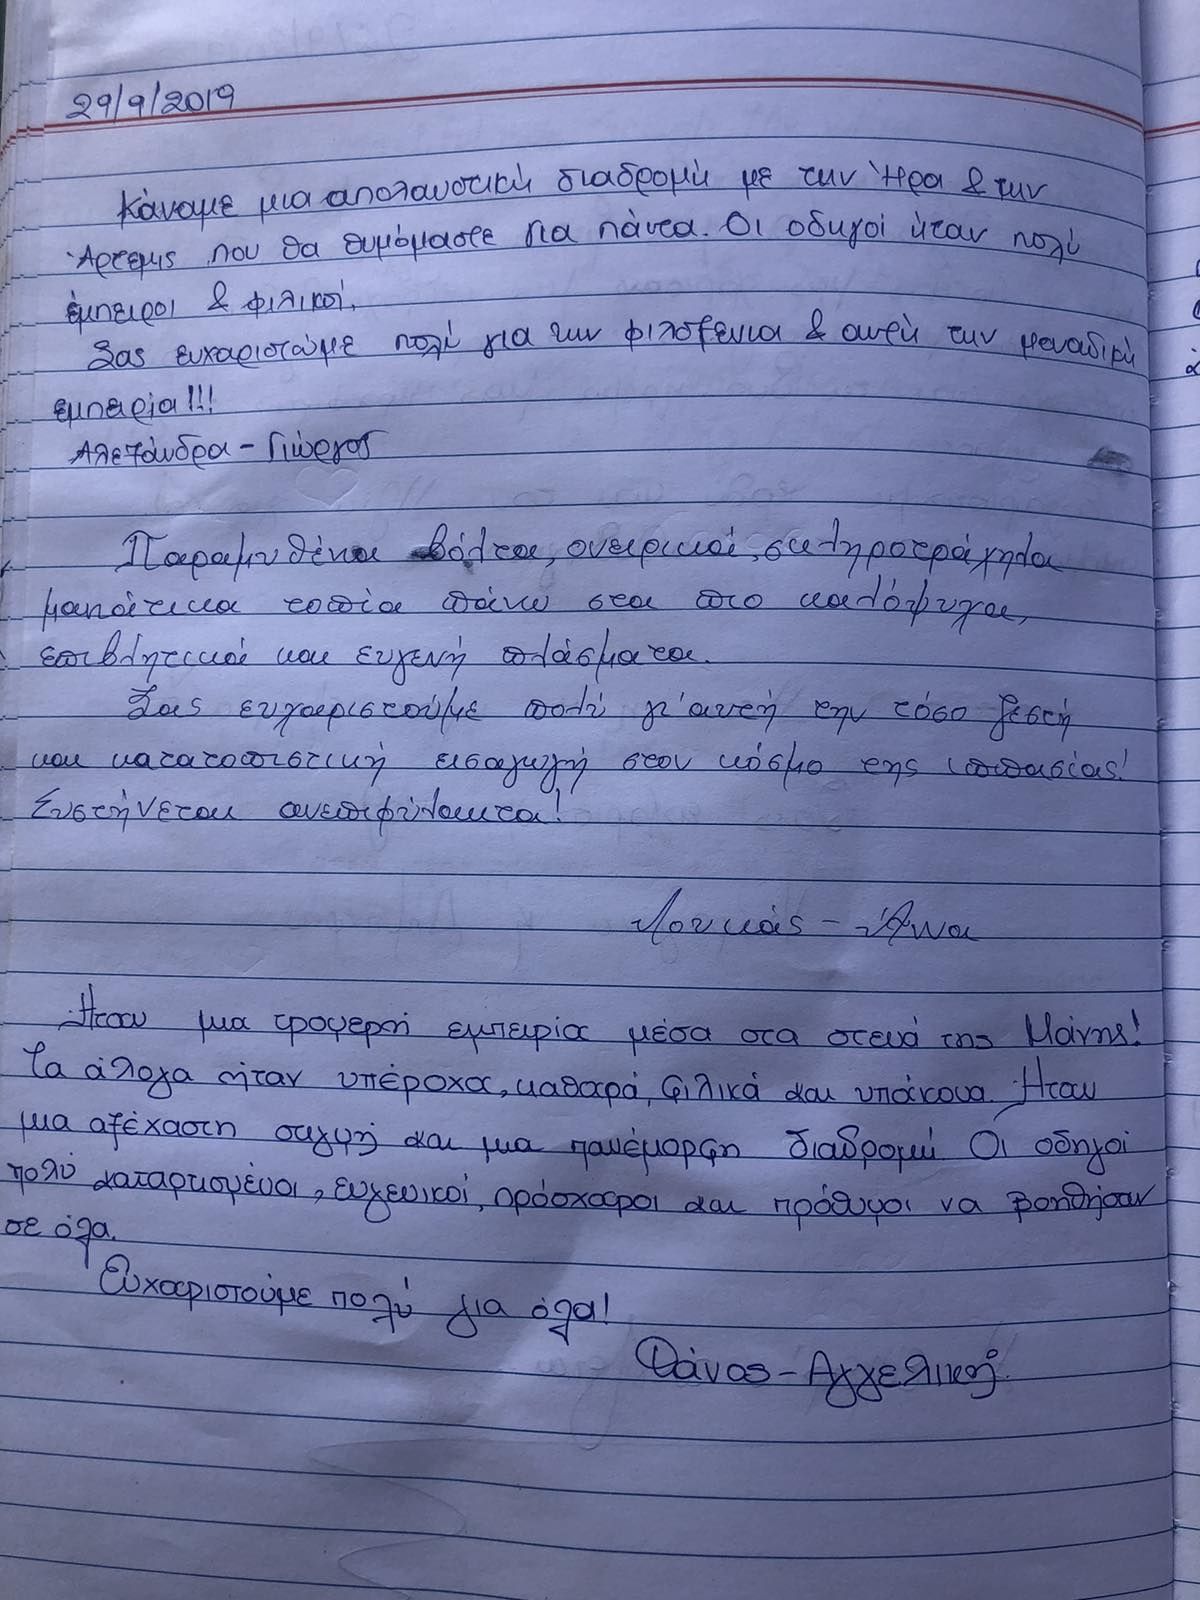 29/9/2019
Κάναμε μια απολαυστική διαδρομή με την Ήρα & την
Άρτεμις που θα θυμόμαστε για πάντα. Οι οδηγοί ήταν πολύ
έμπειροι & φιλικοί.
Σας ευχαριστώμε πολύ για την φιλοξενία & αυτή την μοναδική
εμπειρία!!!
Αλεξάνδρα - Γιώργος
Παραμυθένια βόλτα, ονειρικοί, σκληροτράχηλα
μανιάτικα τοπία πάνω στα πιο καλόψυχα,
επιβλητικά και ευγενή πλάσματα.
Σας ευχαριστούμε πολύ γι'αυτή την τόσο ζεστή
και κατατοπιστική εισαγωγή στον κόσμο της ιππασίας!
Συστήνεται ανεπιφύλακτα!
Λουκάς - Άννα
Ήταν μια τρομερή εμπειρία μέσα στα στενά της Μάνης!
Τα άλογα ήταν υπέροχα, καθαρά, φιλικά και υπάκουα. Ήταν
μια αξέχαστη στιγμή και μια πανέμορφη διαδρομή. Οι οδηγοί
πολύ καταρτισμένοι, ευγενικοί, πρόσχαροι και πρόθυμοι να βοηθήσουν
σε όλα.
Ευχαριστούμε πολύ για όλα!
Φάνος - Αγγελική.